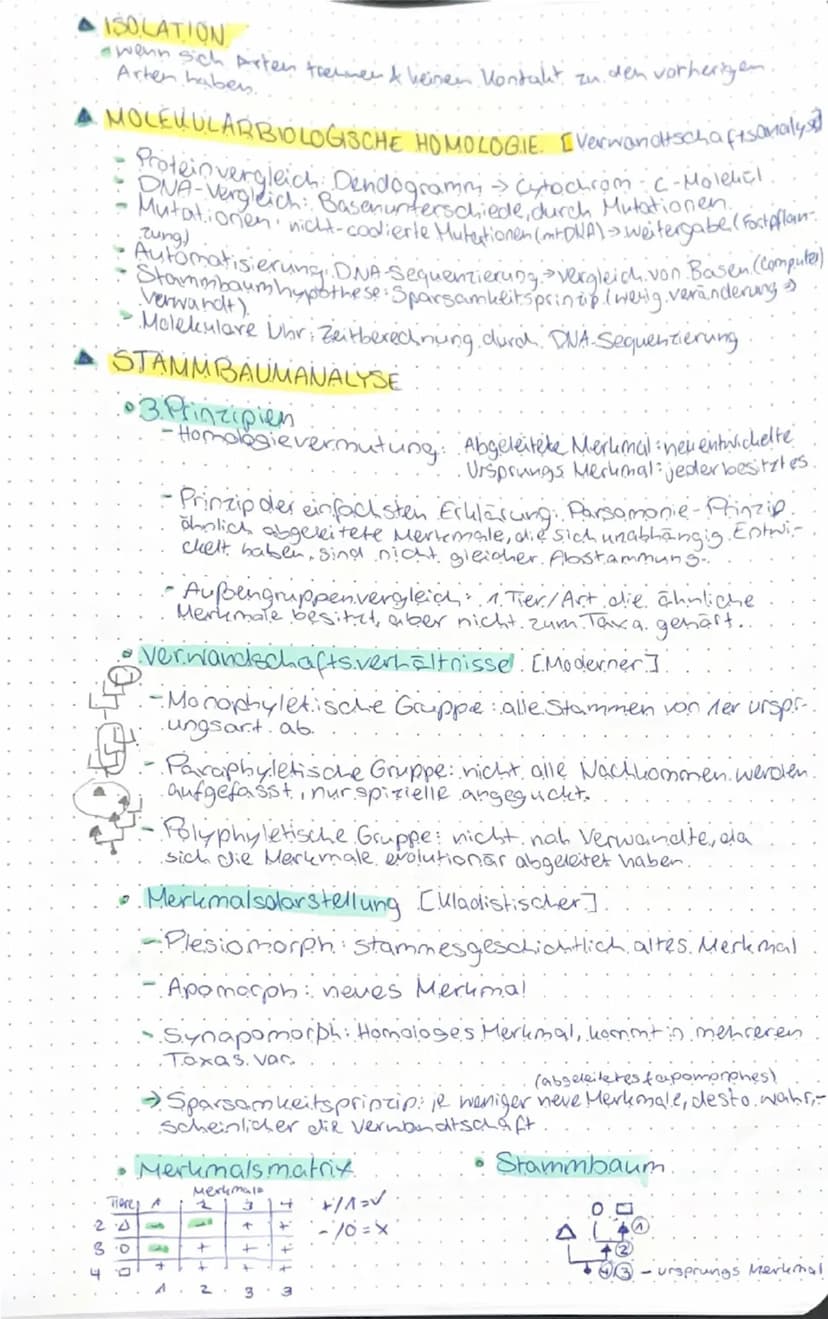 ▲ ISOLATION
• wenn sich Arten trennen & keinen Kontakt zu den vorherigen
Arten haben.
▲ MOLEKULARBIOLOGISCHE HOMOLOGIE [Verwandtschaftsanalyse]
- Proteinvergleich: Dendogramm → Cytochrom-C-Molekül
- DNA-Vergleich: Basenunterschiede, durch Mutationen
- Mutationen: nicht-codierte Mutationen (mtDNA) → Weitergabe (Fortpflan-
zung)
- Automatisierung: DNA-Sequenzierung → vergleich von Basen (Computer)
- Stammbaumhypothese: Sparsamkeitsprinzip (wenig veränderung →
verwandt)
- Molekulare Uhr: Zeitberechnung durch DNA-Sequenzierung
▲ STAMMBAUMANALYSE
• 3 Prinzipien
- Homologievermutung: Abgeleitete Merkmal: neu entwickelte
Ursprungs Merkmal: jeder besitzt es
- Prinzip der einfachsten Erklärung: Parsomonie-Prinzip
ähnlich abgeleitete Merkmale, die sich unabhängig Entwi-
ckelt haben, sind nicht gleicher Abstammung.
- Außengruppenvergleich: 1. Tier/Art die ähnliche
Merkmale besitzt, aber nicht zum Taxa gehört.
• Verwandschaftsverhältnisse [Moderner]
- Monophyletische Gruppe: alle Stammen von 1er urspr-
ungsart ab.
- Paraphyletische Gruppe: nicht alle Nachkommen werden
aufgefasst, nur spizielle angeguckt.
- Polyphyletische Gruppe: nicht nah Verwandte, da
sich die Merkmale evolutionär abgeleitet haben.
• Merkmalsdarstellung [Kladistischer]
- Plesiomorph: stammesgeschichtlich altes Merkmal
- Apomorph: neues Merkmal
- Synapomorph: Homologes Merkmal, kommt in mehreren
Taxas vor.
(abgeleitetes & apomorphes)
→ Sparsamkeitsprinzip: je weniger neue Merkmale, desto wahr-
scheinlicher die Verwandtschaft
• Merkmalsmatrix
• Stammbaum
Merkmale
Tiere 1 2 3 4
+/1=✓
2 △ - - + +
-/0=x
3 O - + + +
4 □ + + + +
1 2 3 3
O □
△ ①
②
④③ - ursprungs Merkmal